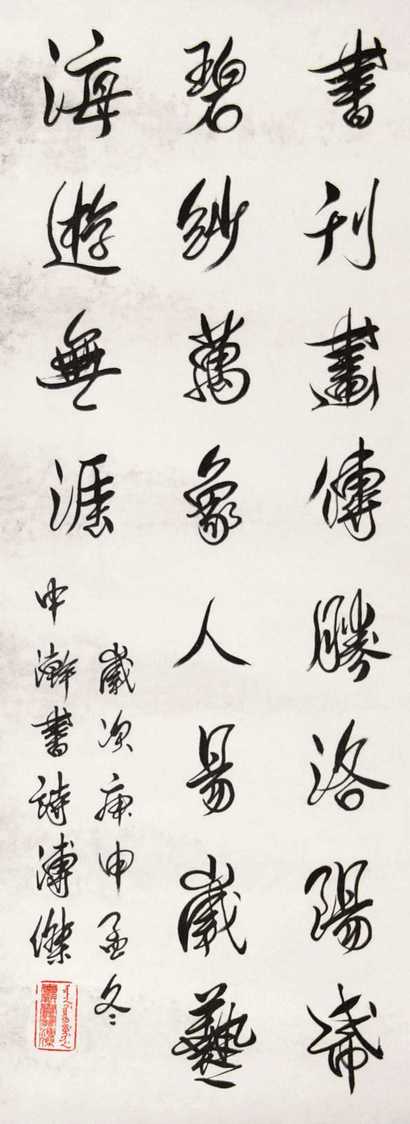 書刊畫傳勝洛陽
碧紗萬象人易歲藝
海遊無涯
歲次庚申孟冬
中澣書詩溥傑